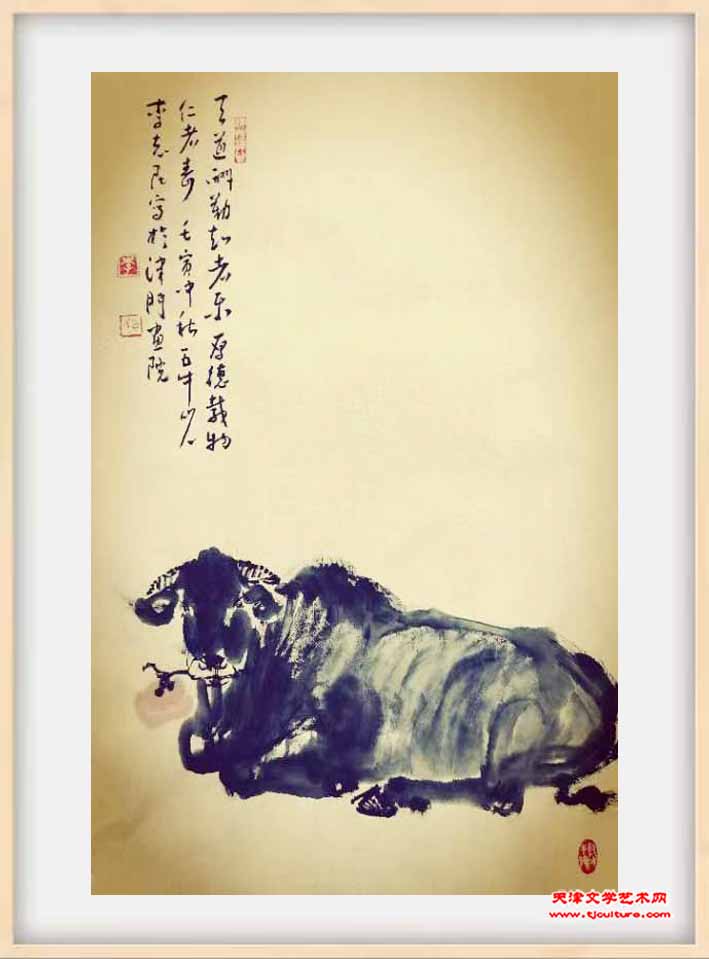 天道酬勤知者乐厚德載物
仁者寿 壬寅中秋五牛
李志民写於津門画院
天津文学艺术网
www.tjculture.com